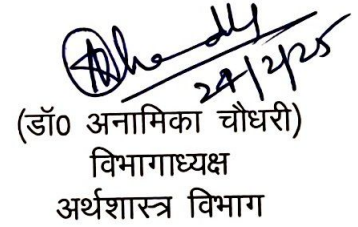 24/2/25
(डॉ0 अनामिका चौधरी)
विभागाध्यक्ष
अर्थशास्त्र विभाग